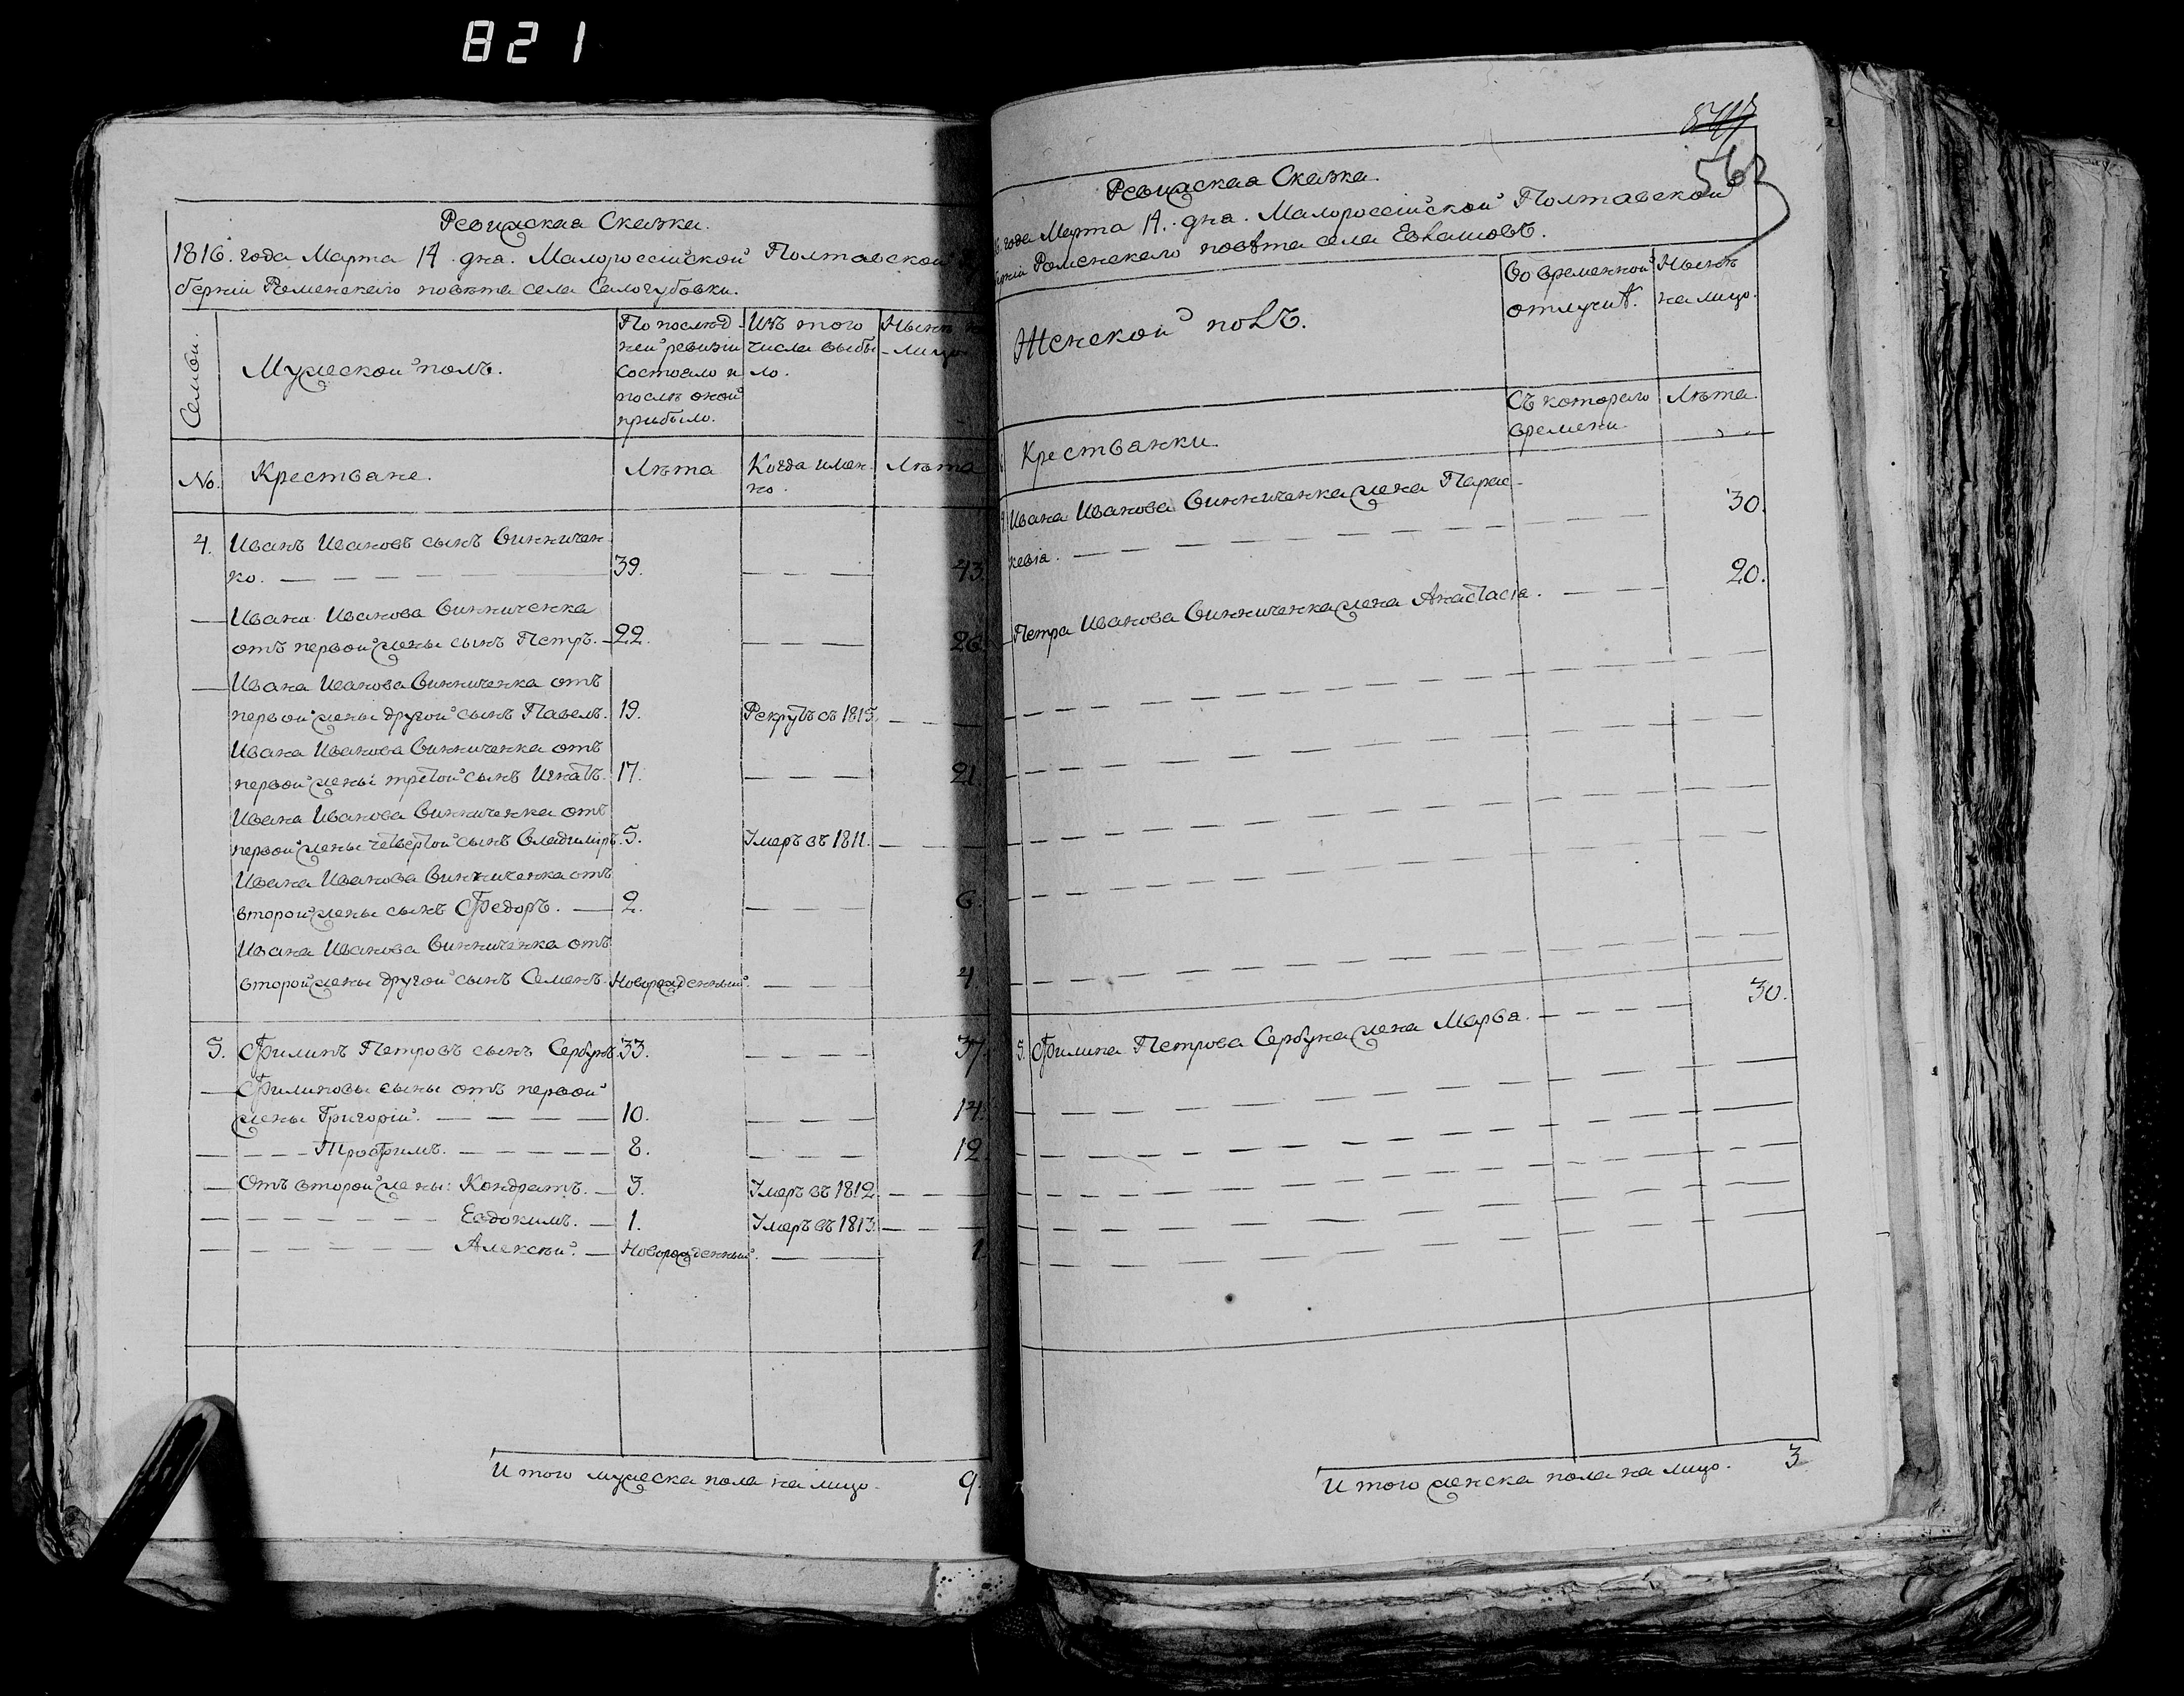 821
Ревизская Сказка.
1816. года Марта 14. дня. Малороссійской Полтавской
берніи Роменскаго повѣта села Салогубовки.
Семьи
Мужеской полъ.
По послѣд-
ней ревизіи
состояло и
послѣ оной
прибыло.
Изъ того
числа выбы-
ло.
Нынѣ на
лицо
№.
Крестьяне.
Лѣта
Когда имен-
но.
Лѣта
4. Иванъ Ивановъ сынъ Винничен-
ко. 39. 43.
Ивана Иванова Винниченка
отъ первой жены сынъ Петръ. 22. 26.
Ивана Иванова Винниченка отъ
первой жены другой сынъ Павелъ. 19. Рекрутъ съ 1815.
Ивана Иванова Винниченка отъ
первой жены третой сынъ Игнатъ. 17. 21.
Ивана Иванова Винниченка отъ
первой жены четвертой сынъ Владимиръ. 5. Умеръ въ 1811.
Ивана Иванова Винниченка отъ
второй жены сынъ Федоръ. 2. 6.
Ивана Иванова Винниченка отъ
второй жены другой сынъ Семенъ. Новорожденный. 4
5. Филипъ Петровъ сынъ Сербунъ 33. 37.
Филиповы сыны отъ первой
жены Григорій. 10. 14.
Трофимъ. 8. 12.
Отъ второй жены: Кондратъ. 3. Умеръ въ 1812
Евдокимъ. 1. Умеръ въ 1813
Алексѣй. Новорожденный. 1.
И того мужеска пола на лицо. 9.
563
Ревизская Сказка.
6. года Марта 14. дня. Малороссійской Полтавской
берніи Роменскаго повѣта села Евлашовъ.
Женской полъ.
Во временной
отлучкѣ.
Нынѣ
на лицо.
Крестьянки.
Съ котораго
времени.
Лѣта.
4. Ивана Иванова Винниченка жена Парас-
кевія. 30.
Петра Иванова Винниченка жена Анастасія. 20.
5. Филипа Петрова Сербуна жена Марѳа. 30.
И того женска пола на лицо. 3